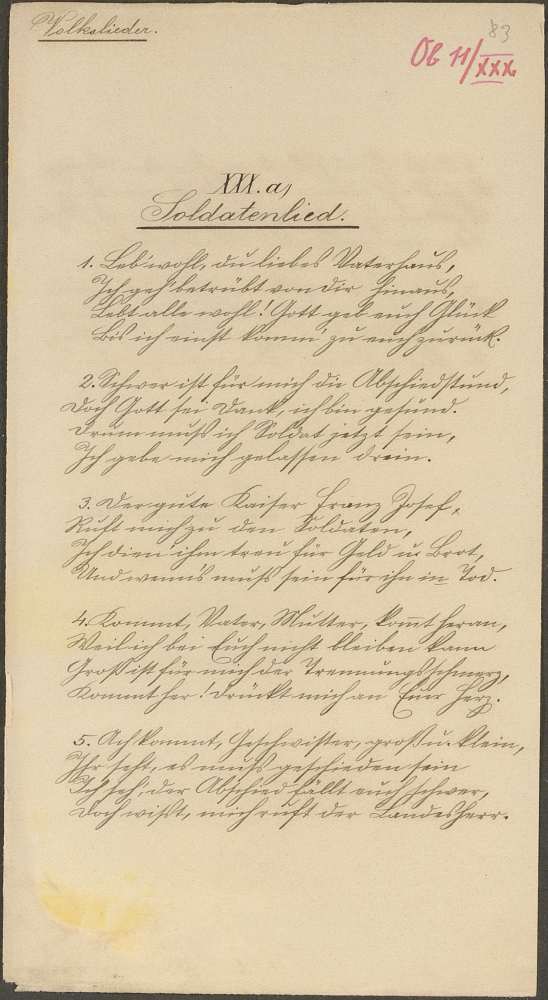 Volkslieder.
83
Ob 11/XXX
XXX. a,
Soldatenlied.
1. Leb' wohl, du liebes Vaterhaus,
Ich geh' betrübt von dir hinaus,
Lebt alle wohl! Gott geb euch Glück
Bis ich einst komm' zu euch zurück.
2. Schwer ist für mich die Abschiedstund,
Doch Gott sei Dank, ich bin gesund.
Drum muß ich Soldat jetzt sein,
Ich gebe mich gelassen drein.
3. Der gute Kaiser Franz Josef,
Ruft mich zu den Soldaten,
Ich dien' ihm treu für Geld u. Brot,
Und wenn's muß sein für ihn in Tod.
4. Kommt, Vater, Mutter, kom̅t heran,
Weil ich bei Euch nicht bleiben kann
Groß ist für mich der Trennungsschmerz,
Kommt her! drückt mich an Euer Herz.
5. Ach kommt, Geschwister, groß u. klein,
Ihr seht, es muß geschieden sein
Ich seh', der Abschied fällt euch schwer,
Doch wißt, mich ruft der Landesherr.